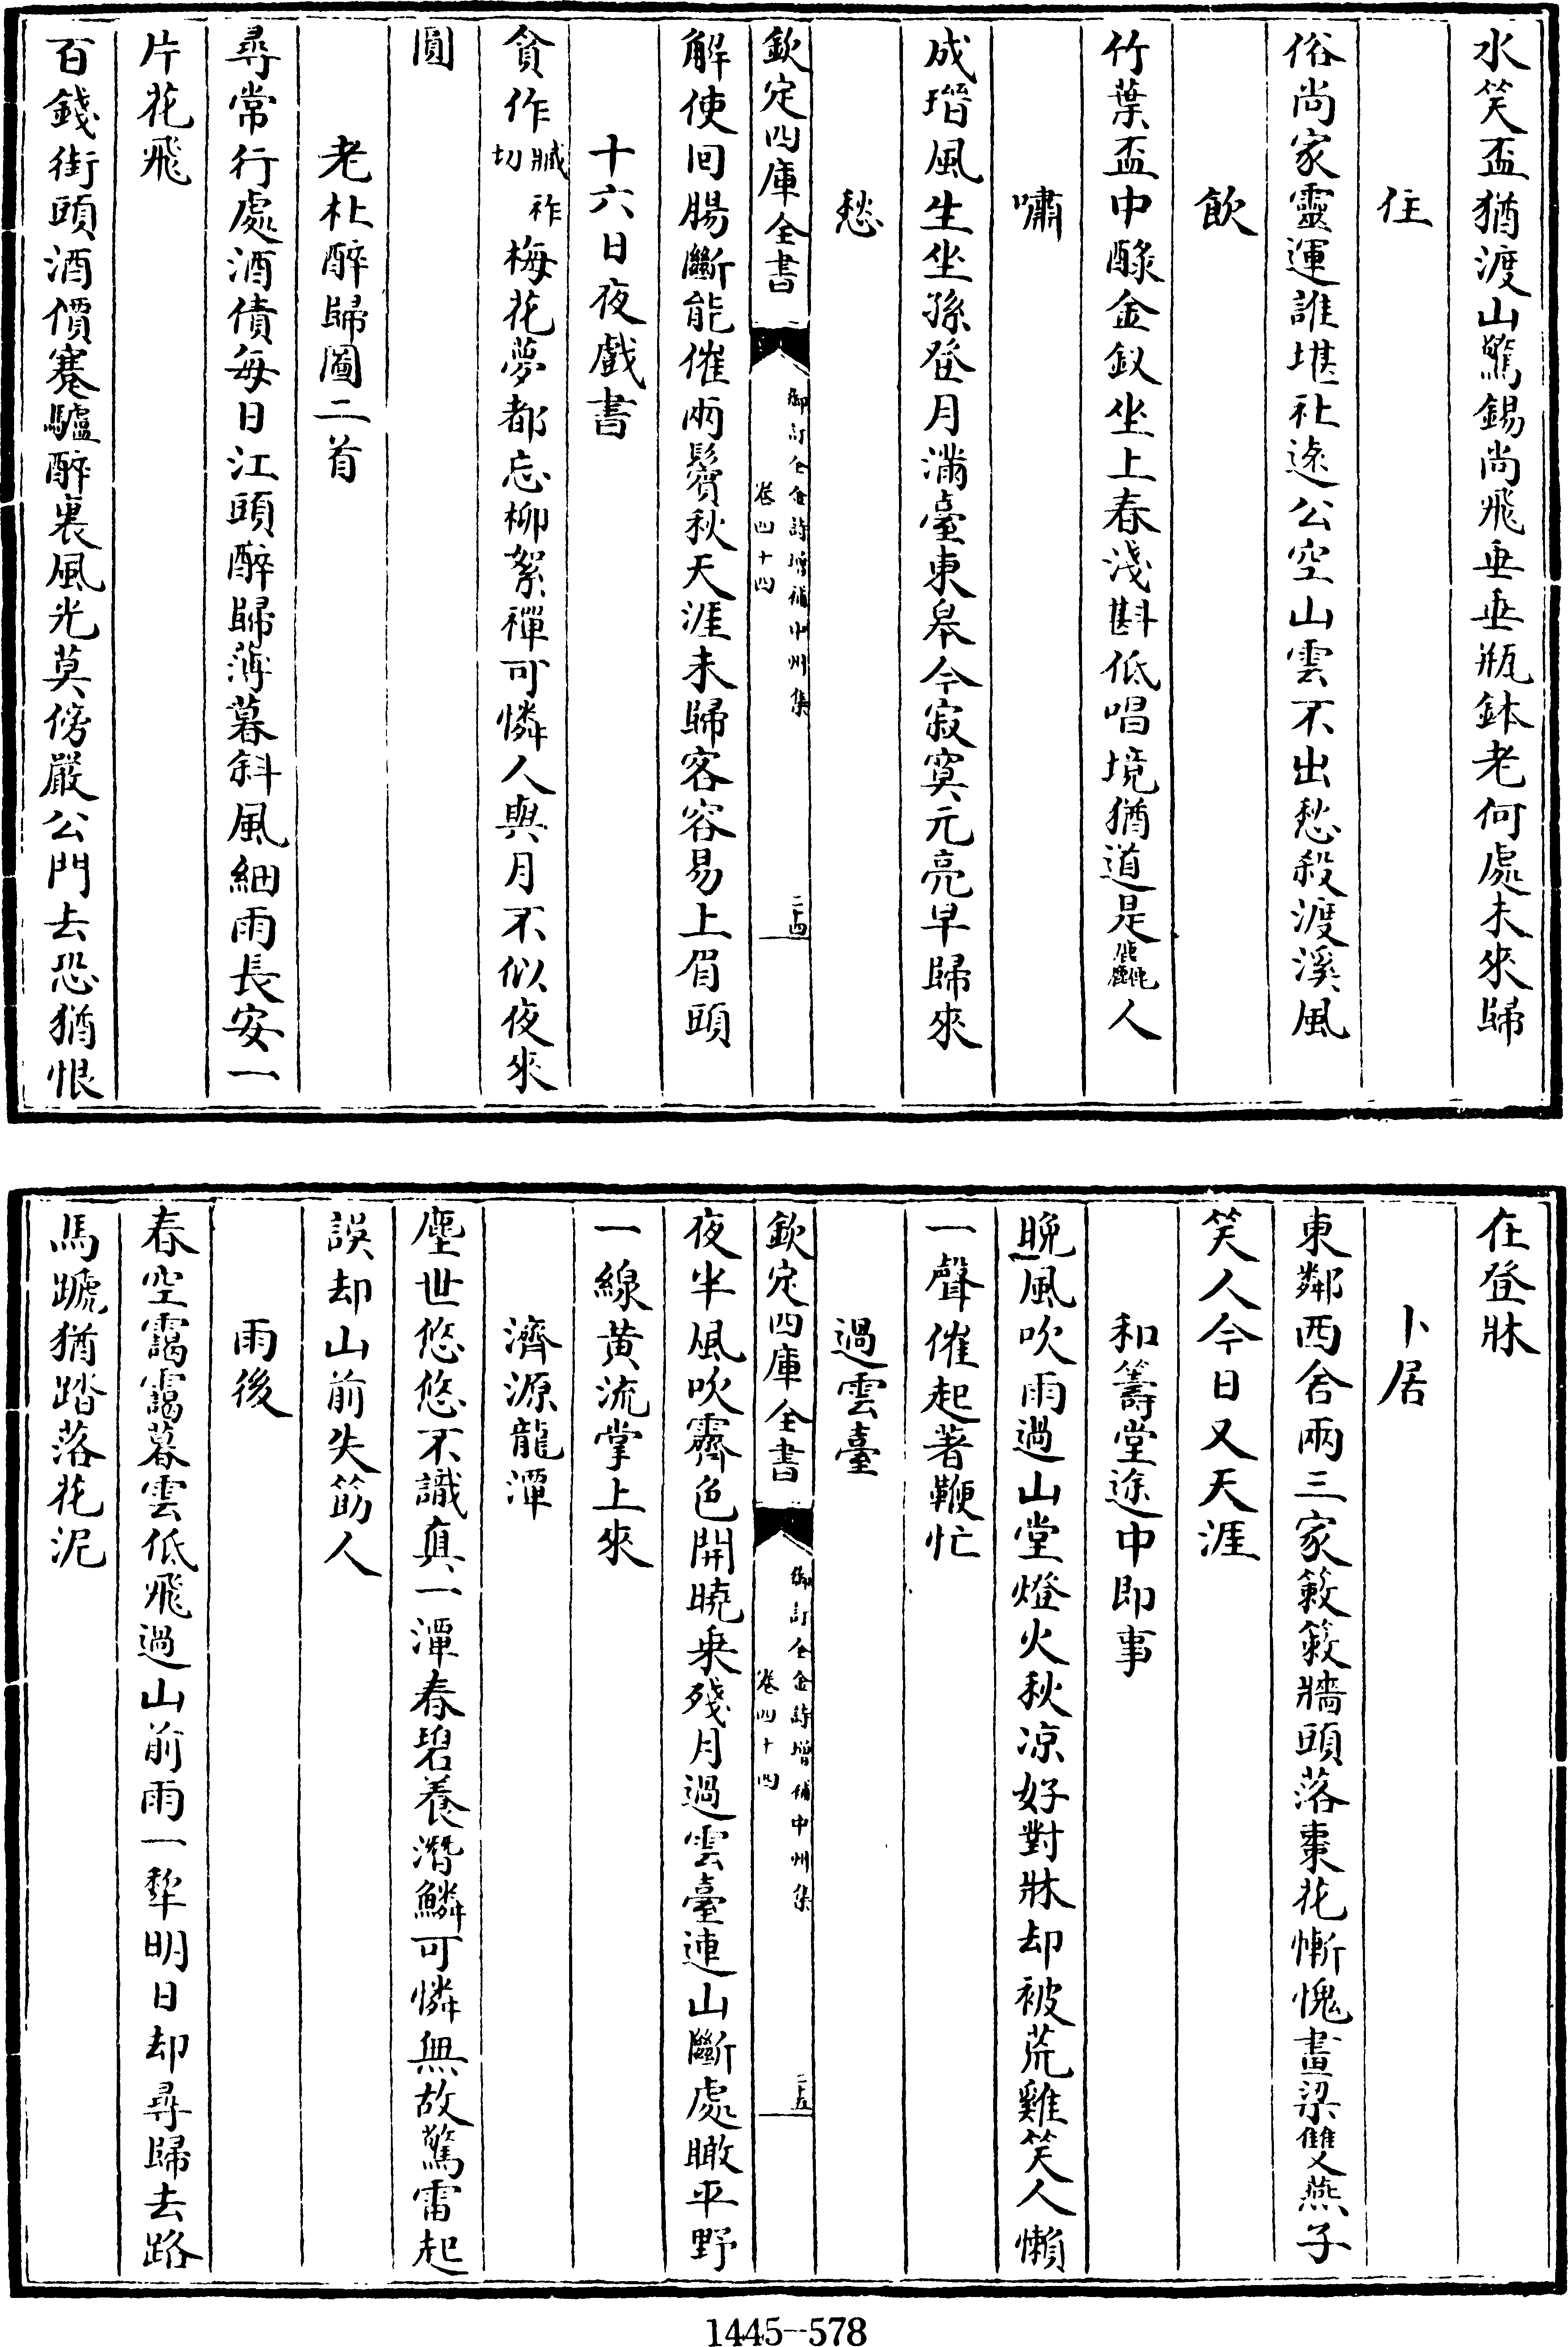 水笑盃猶渡山驚錫尚飛垂垂瓶鉢老何處未來歸
住
俗尚家靈運誰堪社遠公空山雲不出愁殺渡溪風
飲
竹葉盃中醁金釵坐上春淺斟低唱境猶道是麤人
嘯
成瑨風生坐孫登月滿臺東皋今寂寞元亮早歸來
愁
欽定四庫全書
御訂全金詩增補中州集
卷四十四
二十四
解使回腸斷能催兩鬢秋天涯未歸客容易上眉頭
十六日夜戲書
貪作臧祚切梅花夢都忘柳絮禪可憐人與月不似夜來
圓
老杜醉歸圖二首
尋常行處酒債每日江頭醉歸薄暮斜風細雨長安一
片花飛
百錢街頭酒價蹇驢醉裏風光莫傍嚴公門去恐猶恨
在登牀
卜居
東鄰西舍兩三家簌簌牆頭落棗花慚愧畫梁雙燕子
笑人今日又天涯
和籌堂途中即事
晚風吹雨過山堂燈火秋凉好對牀却被荒雞笑人懶
一聲催起著鞭忙
過雲臺
欽定四庫全書
御訂全金詩增補中州集
卷四十四
二十五
夜半風吹霽色開曉乗殘月過雲臺連山斷處瞰平野
一線黄流掌上來
濟源龍潭
塵世悠悠不識真一潭春碧養潛鱗可憐無故驚雷起
誤却山前失筯人
雨後
春空靄靄暮雲低飛過山前雨一犂明日却尋歸去路
馬蹏猶踏落花泥
1445-578